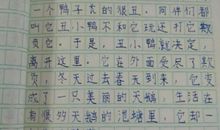 一个鸭子长的很丑。同伴们都
叫它丑小鸭不和它玩还打它欺
负它。于是,丑小鸭就决定,
离开这里。它在外面受尽了欺
负,冬天过去春天到来,它变
成了一只美丽的天鹅,生活在
有很多天鹅的池塘里,它却一